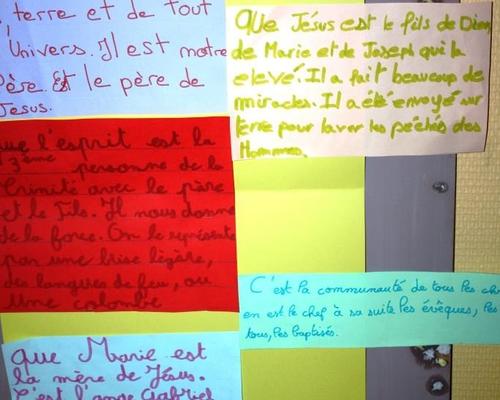 terre et de tout
l'Univers. Il est notre
Père. Et le père de
Jesus.
que Jésus est le fils de Dieu,
de Marie et de Joseph qui l'a
elevé. Il a fait beaucoup de
miracles. Il a été envoyé sur
terre pour laver les péchés des
Hommes.
que l'esprit est la
3ème personne de la
Trinité avec le père
et le Fils. Il nous donne
de la force. On le représente
par une brise légère,
des langues de feu, ou
une colombe
C'est la communauté de tous les
en est le chef à sa suite les évêques, les
tous, les baptisés.
que Marie est
la mère de Jésus.
C'est l'ange Gabriel